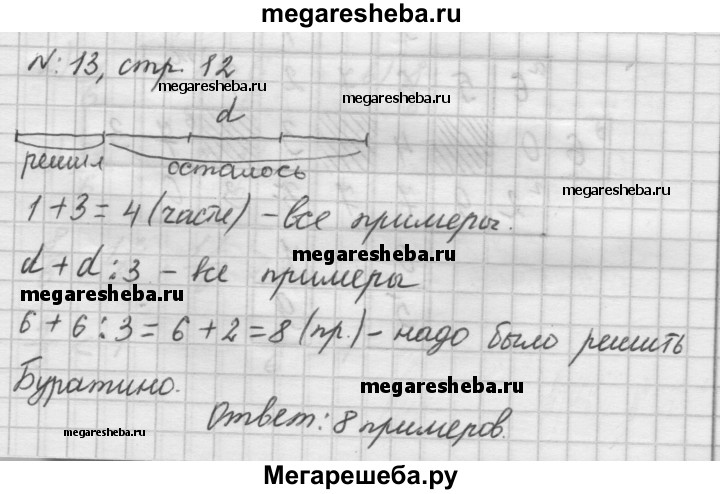 megaresheba.ru
№: 13, стр. 12
megaresheba.ru
megaresheba.ru
d
решил осталось
megaresheba.ru
1 + 3 = 4 (части) – все примеры.
megaresheba.ru
d + d : 3 – все примеры
megaresheba.ru
6 + 6 : 3 = 6 + 2 = 8 (пр.) – надо было решить
Буратино.
megaresheba.ru
Ответ: 8 примеров.
megaresheba.ru
Мегарешеба.ру